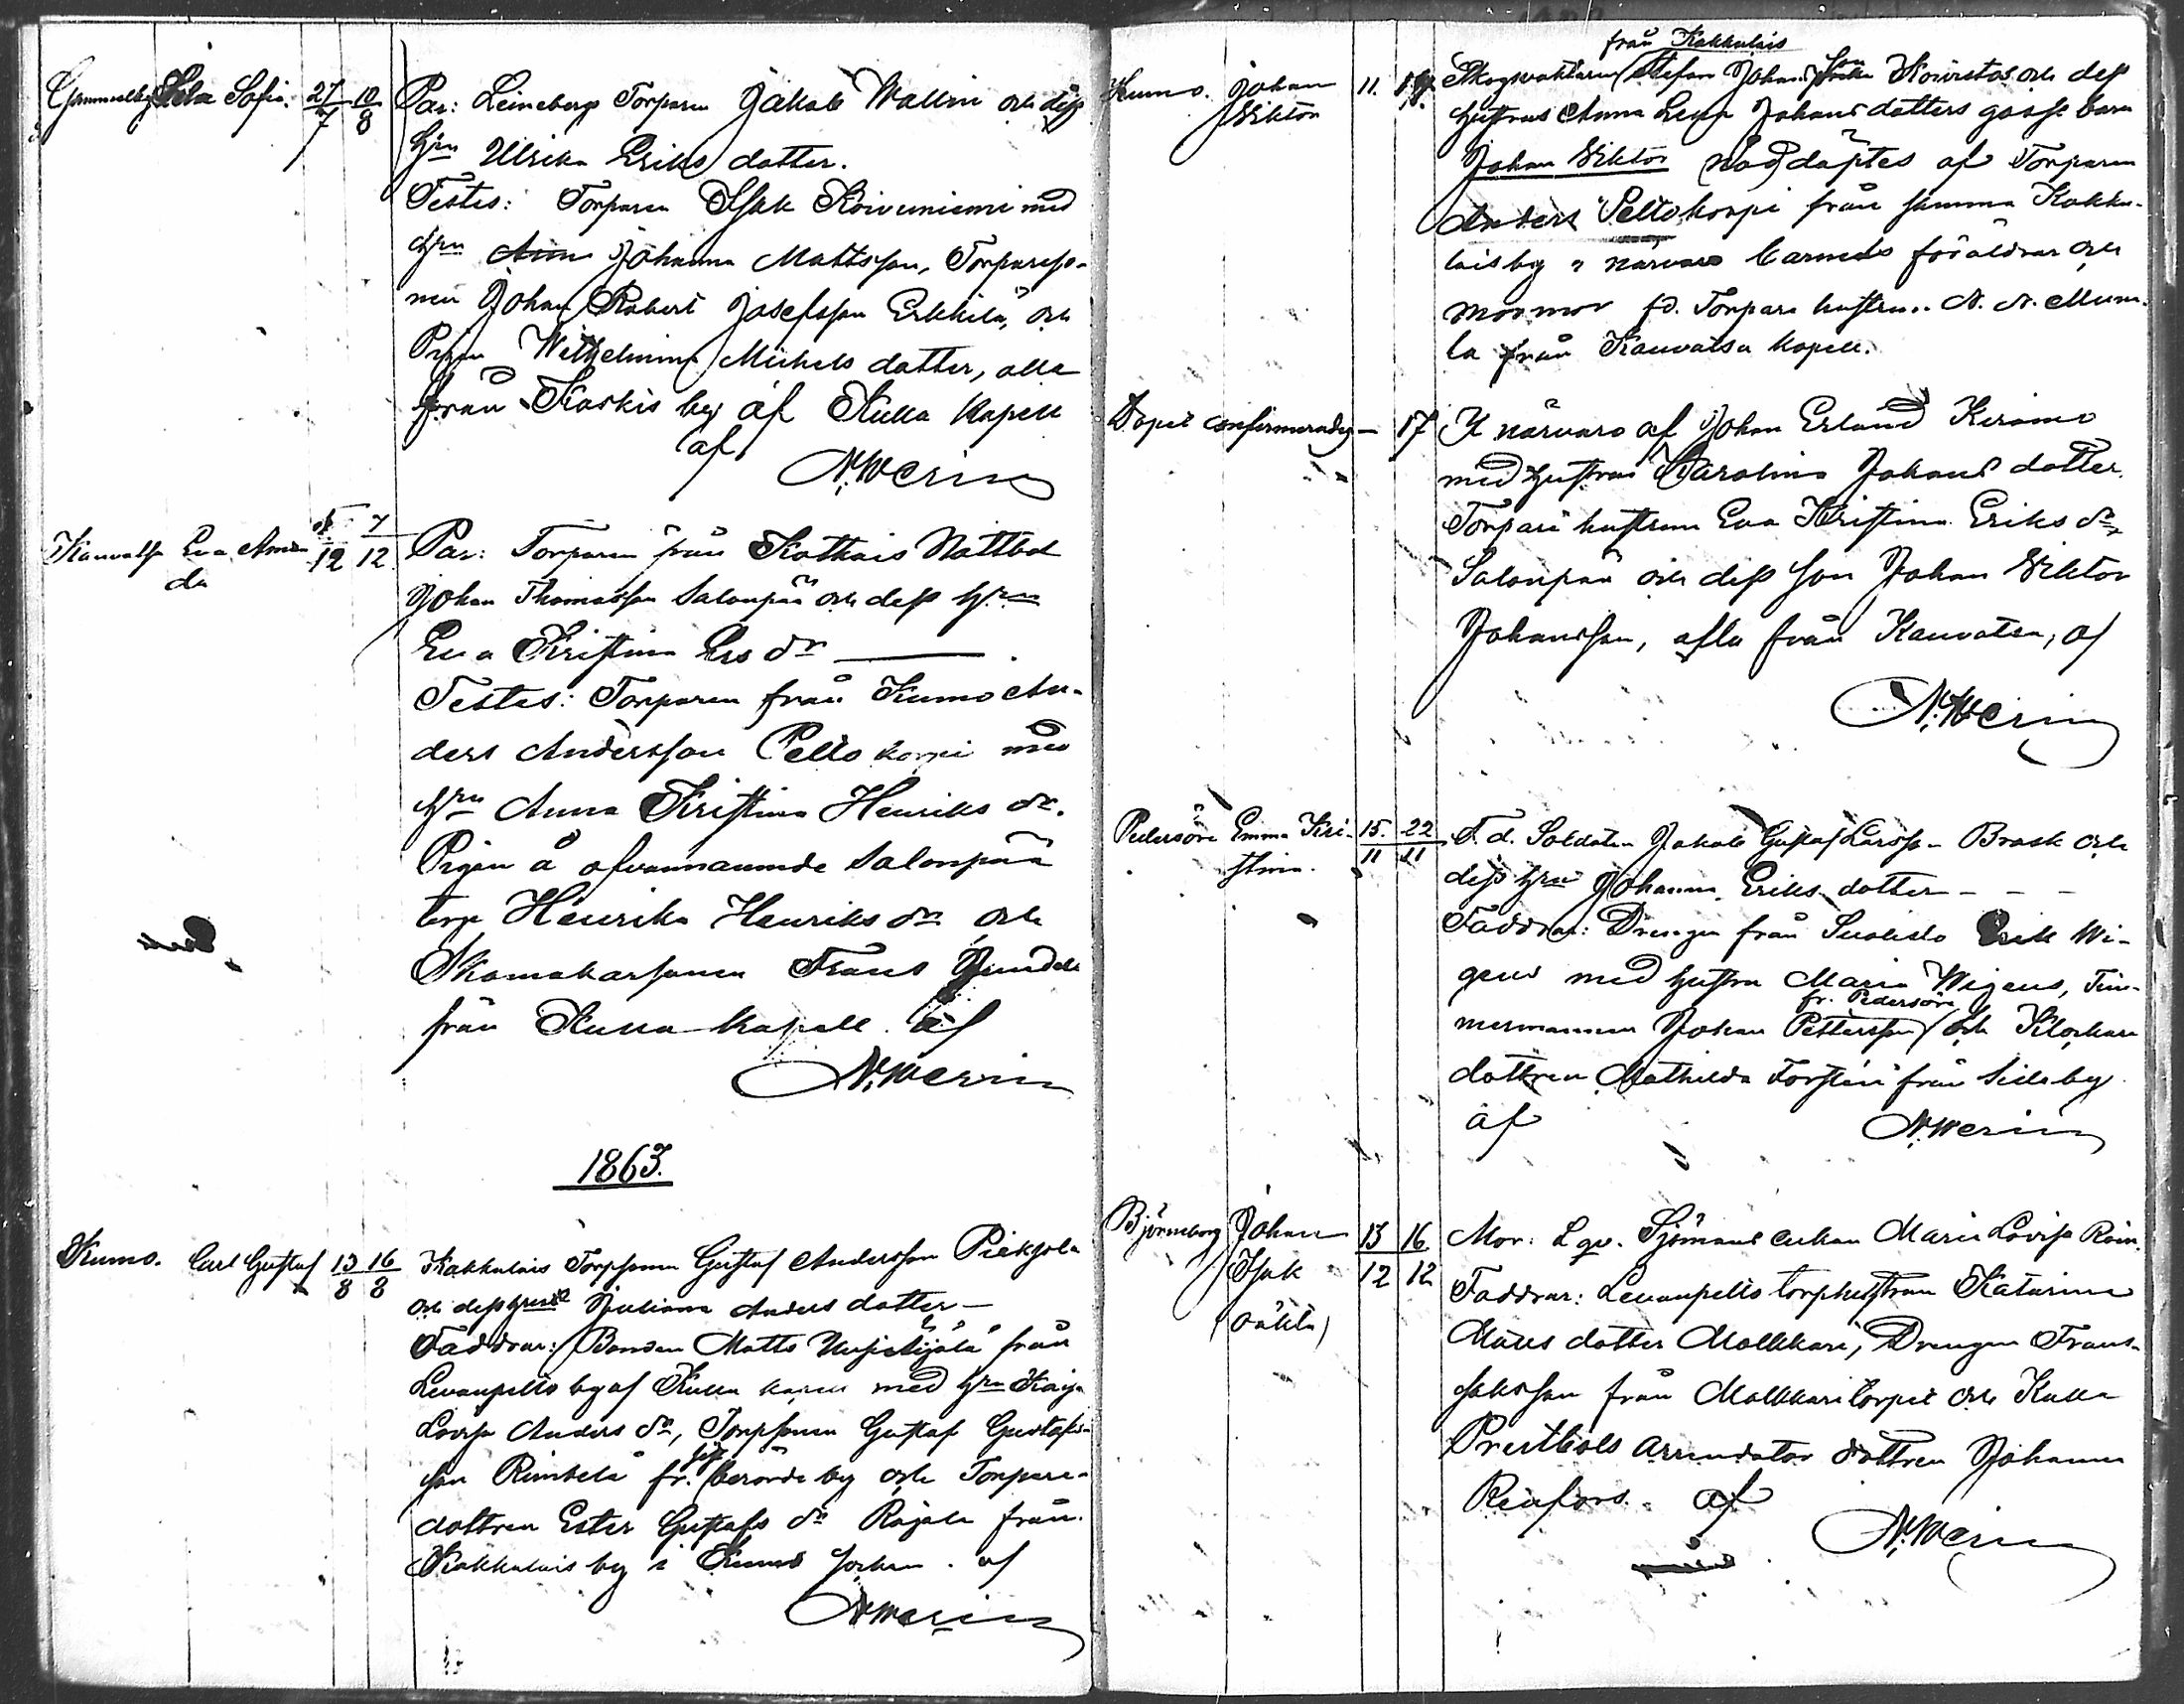 Gammelby Lela Sofia. 27/7 10/8 Par: Leineberg Torparen Jakob Wallin och dess
Hru Ulrika Eriks dotter.
Testes: Torparen Isak Koivuniemi med
Hru Johanna Mattsson, Torpareso-
nen Johan Robert Josefsson Erkkilä, och
Pigan Wilhelmina Michels dotter, alla
från Kaskis by af Kulla Kapell
af
N. Werin
Kauvatsa Eva Aman 5/12 7/12 Par: Torparen från Kothais Nattbol
da
Johan Thomasson Salonpää och dess Hru
Eva Kristina Ers dr
Testes: Torparen från Kumo An-
ders Andersson Peltokorpi med
Hru Anna Kristina Henriks dr.
Pigan å ofvannamnde Salonpää
torp Henrika Henriks dr och
Skomakarsonen Frans
från Kulla Kapell af
N. Werin
1863.
Kumo. Carl Gustaf 13/8 16/8 Kakkulais Torpsonen Gustaf Andersson Pieksola
och dess hru Juliana Anders dotter —
Faddrar: Bonden Matts från
Levanpelto by af Kulla kapell med hru Kajsa
Lovisa Anders dr, Torpsonen Gustaf Gustafs-
son Rimbelä fr. berörde by och Torpare-
dottren Ester Gustafs dr Rajala från
Kakkulais by i Kumo socken. af
N. Werin
från Kakkulais
Kumo. Johan 11. 17. Skogsvaktaren Stefan Johansson Koivistos och dess
Viktor hustrus Anna Lena Johans dotters gosse barn
Johan Viktor nöddöptes af Torparen
Anders Peltokorpi från samma Kakku-
lais by i närvaro barnets föräldrar och
mormor fd. Torpare hustrun N. N.
la från Kauvatsa Kapell.
Dopet confirmerades — 17 I närvaro af Johan Erland Keramo
med hustru Karolina Johans dotter.
Torpare hustrun Eva Kristina Eriks dr
Salonpää och dess son Johan Viktor
Johansson, alla från Kauvatsa, af
N. Werin
Pedersöre Emma Kri- 15/11 22/11 F. d. Soldaten Jakob Gustaf Larsson Brask och
stina. dess hru Johanna Eriks dotter — — —
Faddrar: Drengen från Suolisto Erik Wi-
gens med hustru Maria Wigens, Tim-
fr. Pedersöre
mermannen Johan Pettersson och Klockare
dottren Mathilda Forstén från Silaby
af N. Werin
Björneborg Johan 13/12 16/12 Mor: L qv. Sjömans enkan Maria Lovisa Roin.
Isak Faddrar: Levanpelto torphustrun Katarina
(oäkta) Mats dotter Mollikari, Drengen Frans
Isaksson från Mollikari torpet och Kulla
Prestbols arrendator dottren Johanna
Renfors. af
N. Werin